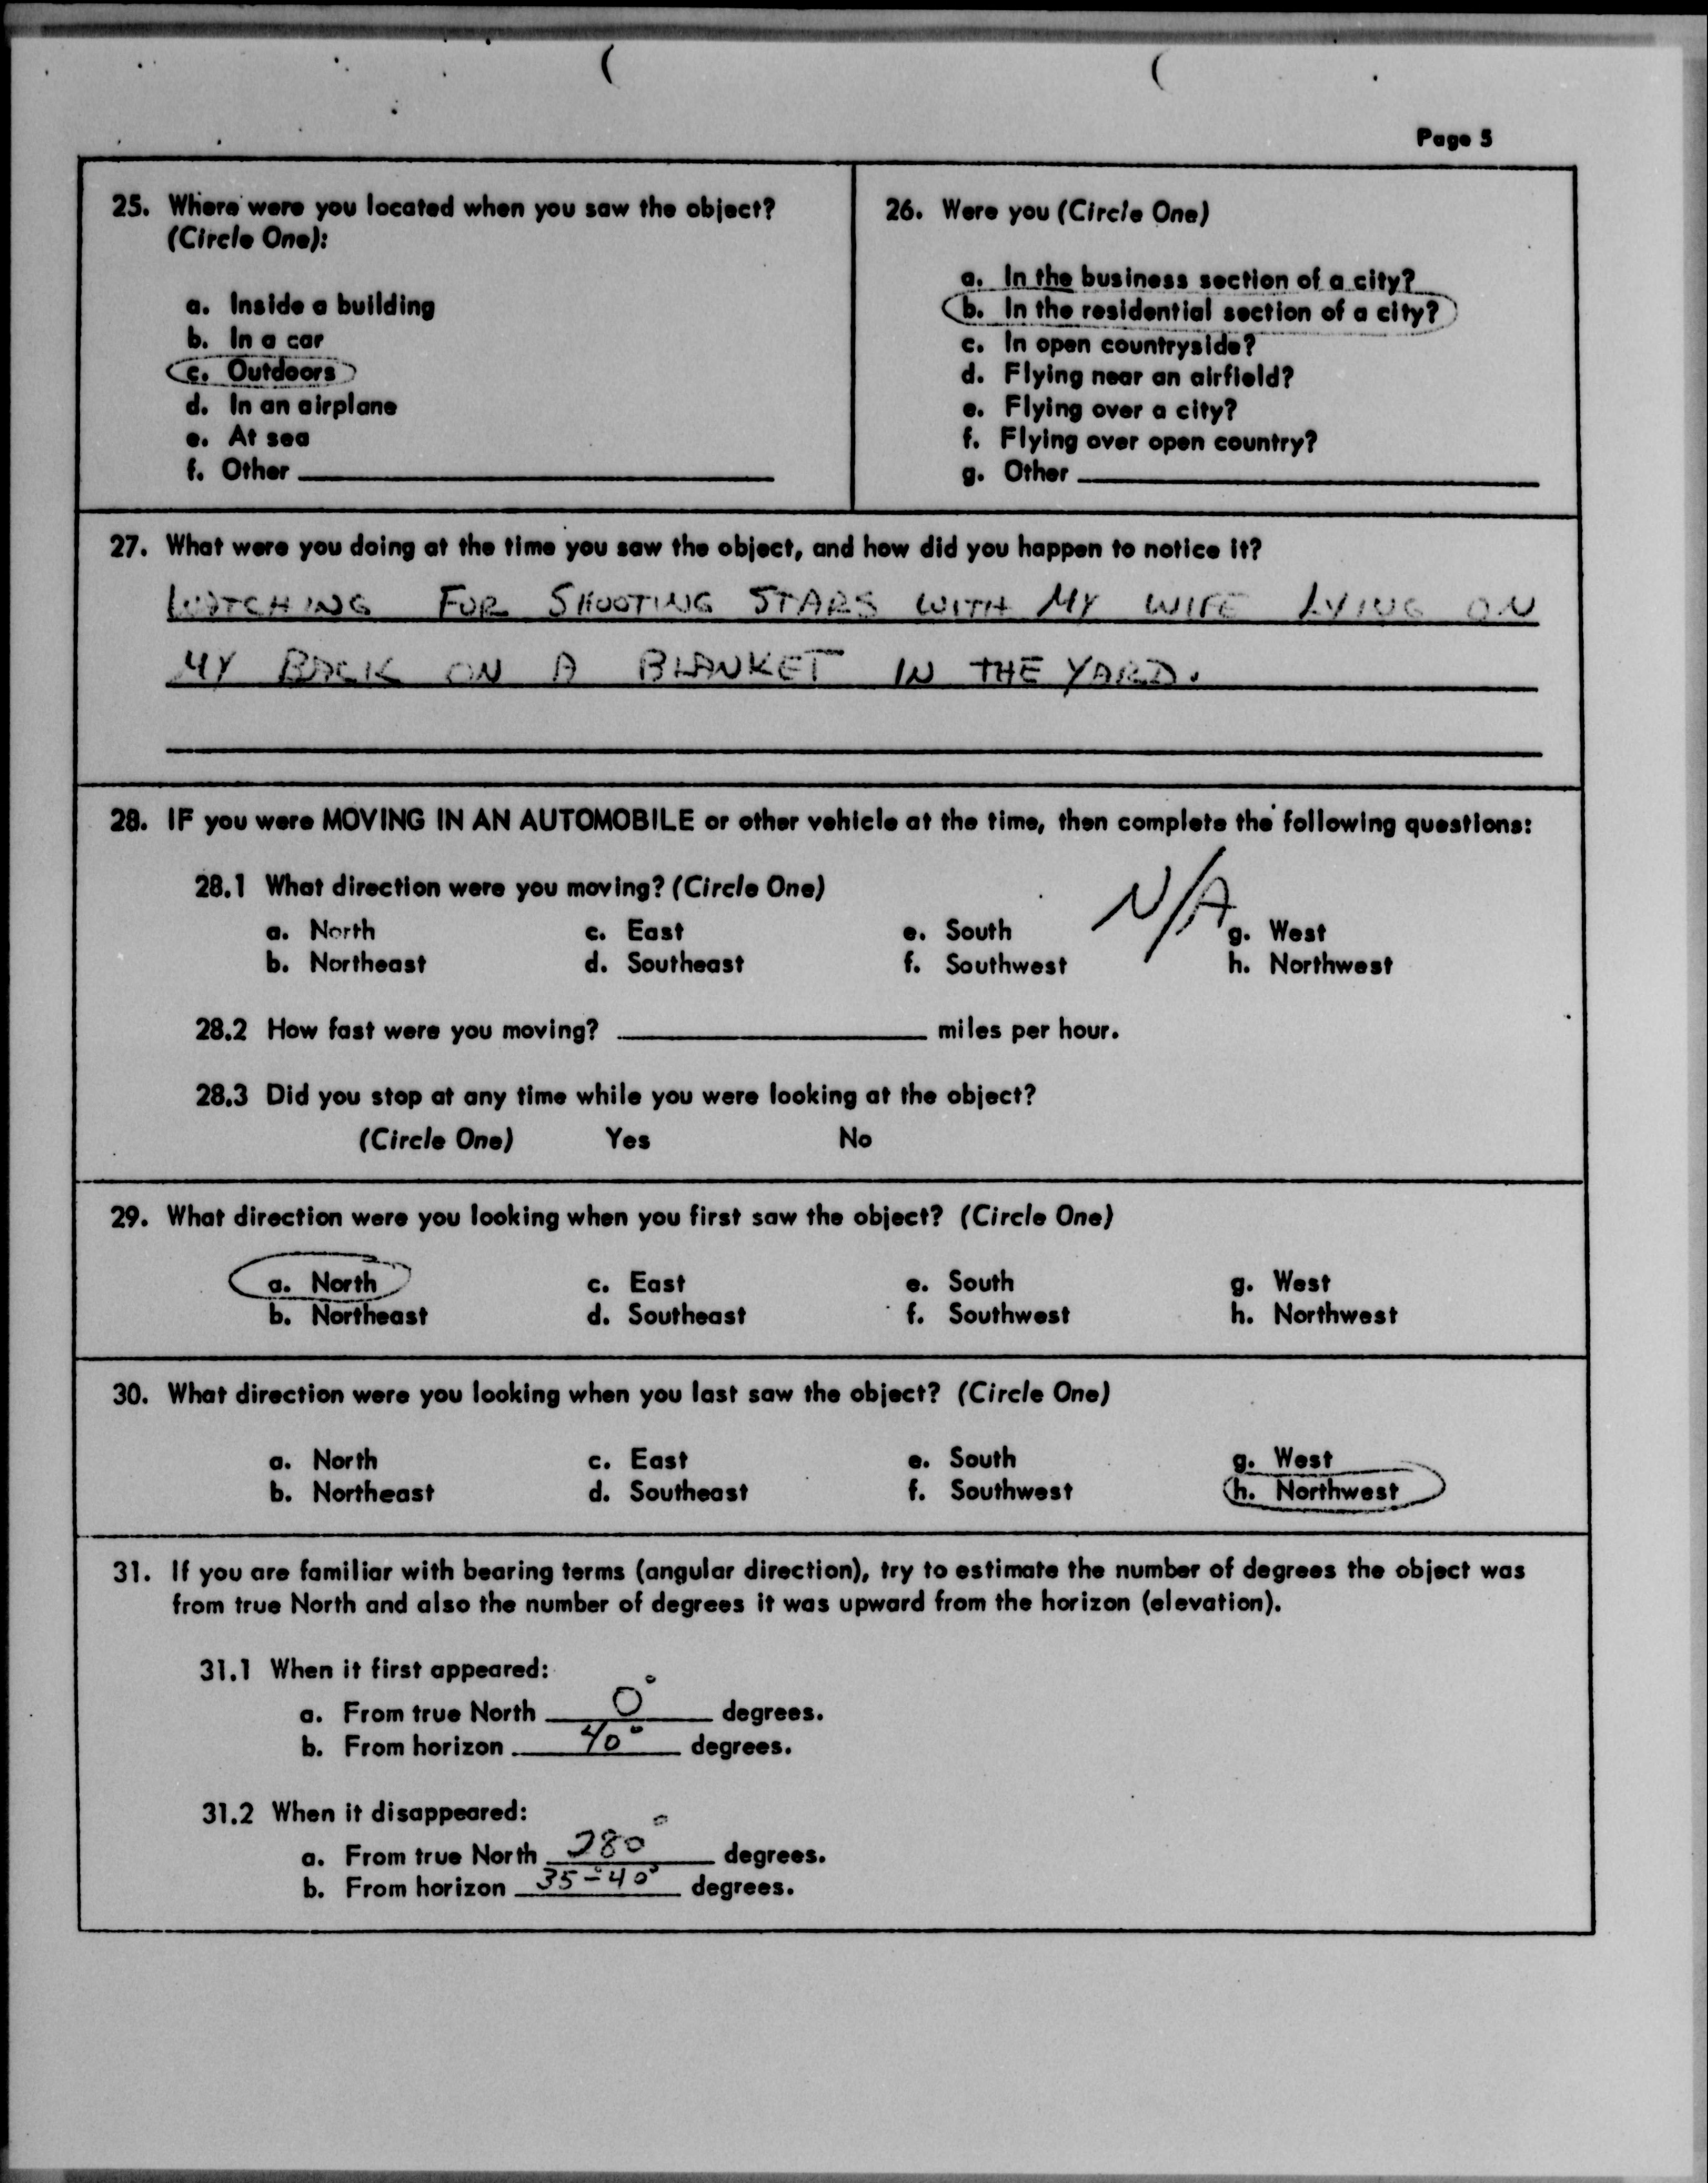 Page 5
25. Where were you located when you saw the object?
(Circle One):
a. Inside a building
b. In a car
c. Outdoors
d. In an airplane
e. At sea
f. Other
26. Were you (Circle One)
a. In the business section of a city?
b. In the residential section of a city?
c. In open countryside?
d. Flying near an airfield?
e. Flying over a city?
f. Flying over open country?
g. Other
27. What were you doing at the time you saw the object, and how did you happen to notice it?
WATCHING FOR SHOOTING STARS WITH MY WIFE LYING ON
MY BACK ON A BLANKET IN THE YARD.
28. IF you were MOVING IN AN AUTOMOBILE or other vehicle at the time, then complete the following questions:
28.1 What direction were you moving? (Circle One)
N/A
a. North c. East e. South g. West
b. Northeast d. Southeast f. Southwest h. Northwest
28.2 How fast were you moving? miles per hour.
28.3 Did you stop at any time while you were looking at the object?
(Circle One) Yes No
29. What direction were you looking when you first saw the object? (Circle One)
a. North c. East e. South g. West
b. Northeast d. Southeast f. Southwest h. Northwest
30. What direction were you looking when you last saw the object? (Circle One)
a. North c. East e. South g. West
b. Northeast d. Southeast f. Southwest h. Northwest
31. If you are familiar with bearing terms (angular direction), try to estimate the number of degrees the object was
from true North and also the number of degrees it was upward from the horizon (elevation).
31.1 When it first appeared:
a. From true North 0° degrees.
b. From horizon 40° degrees.
31.2 When it disappeared:
a. From true North 280° degrees.
b. From horizon 35°-40° degrees.